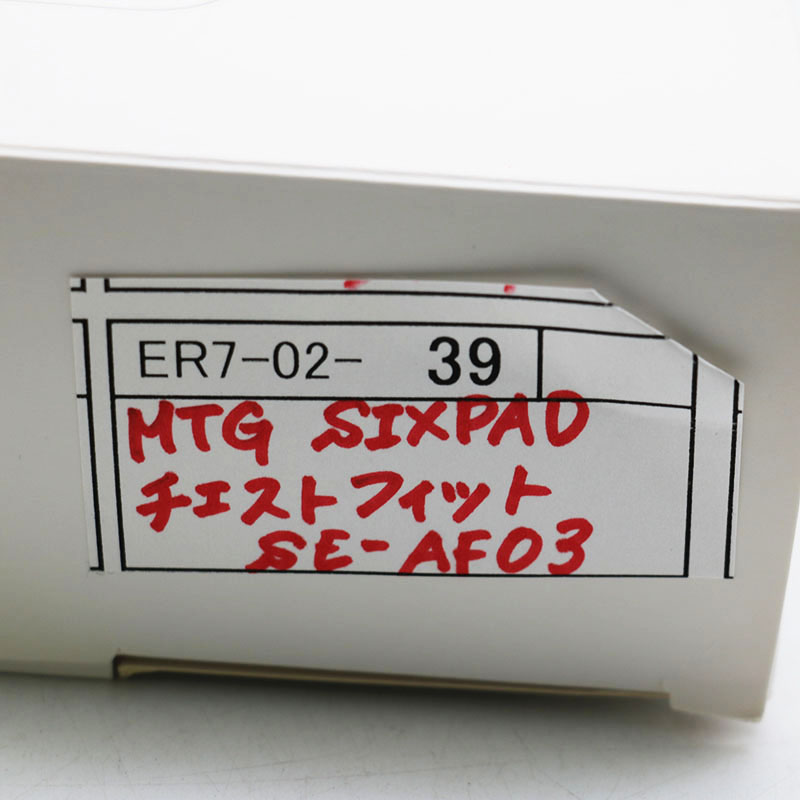 ER7-02- 39
MTG SIXPAD
チェストフィット
SE-AF03